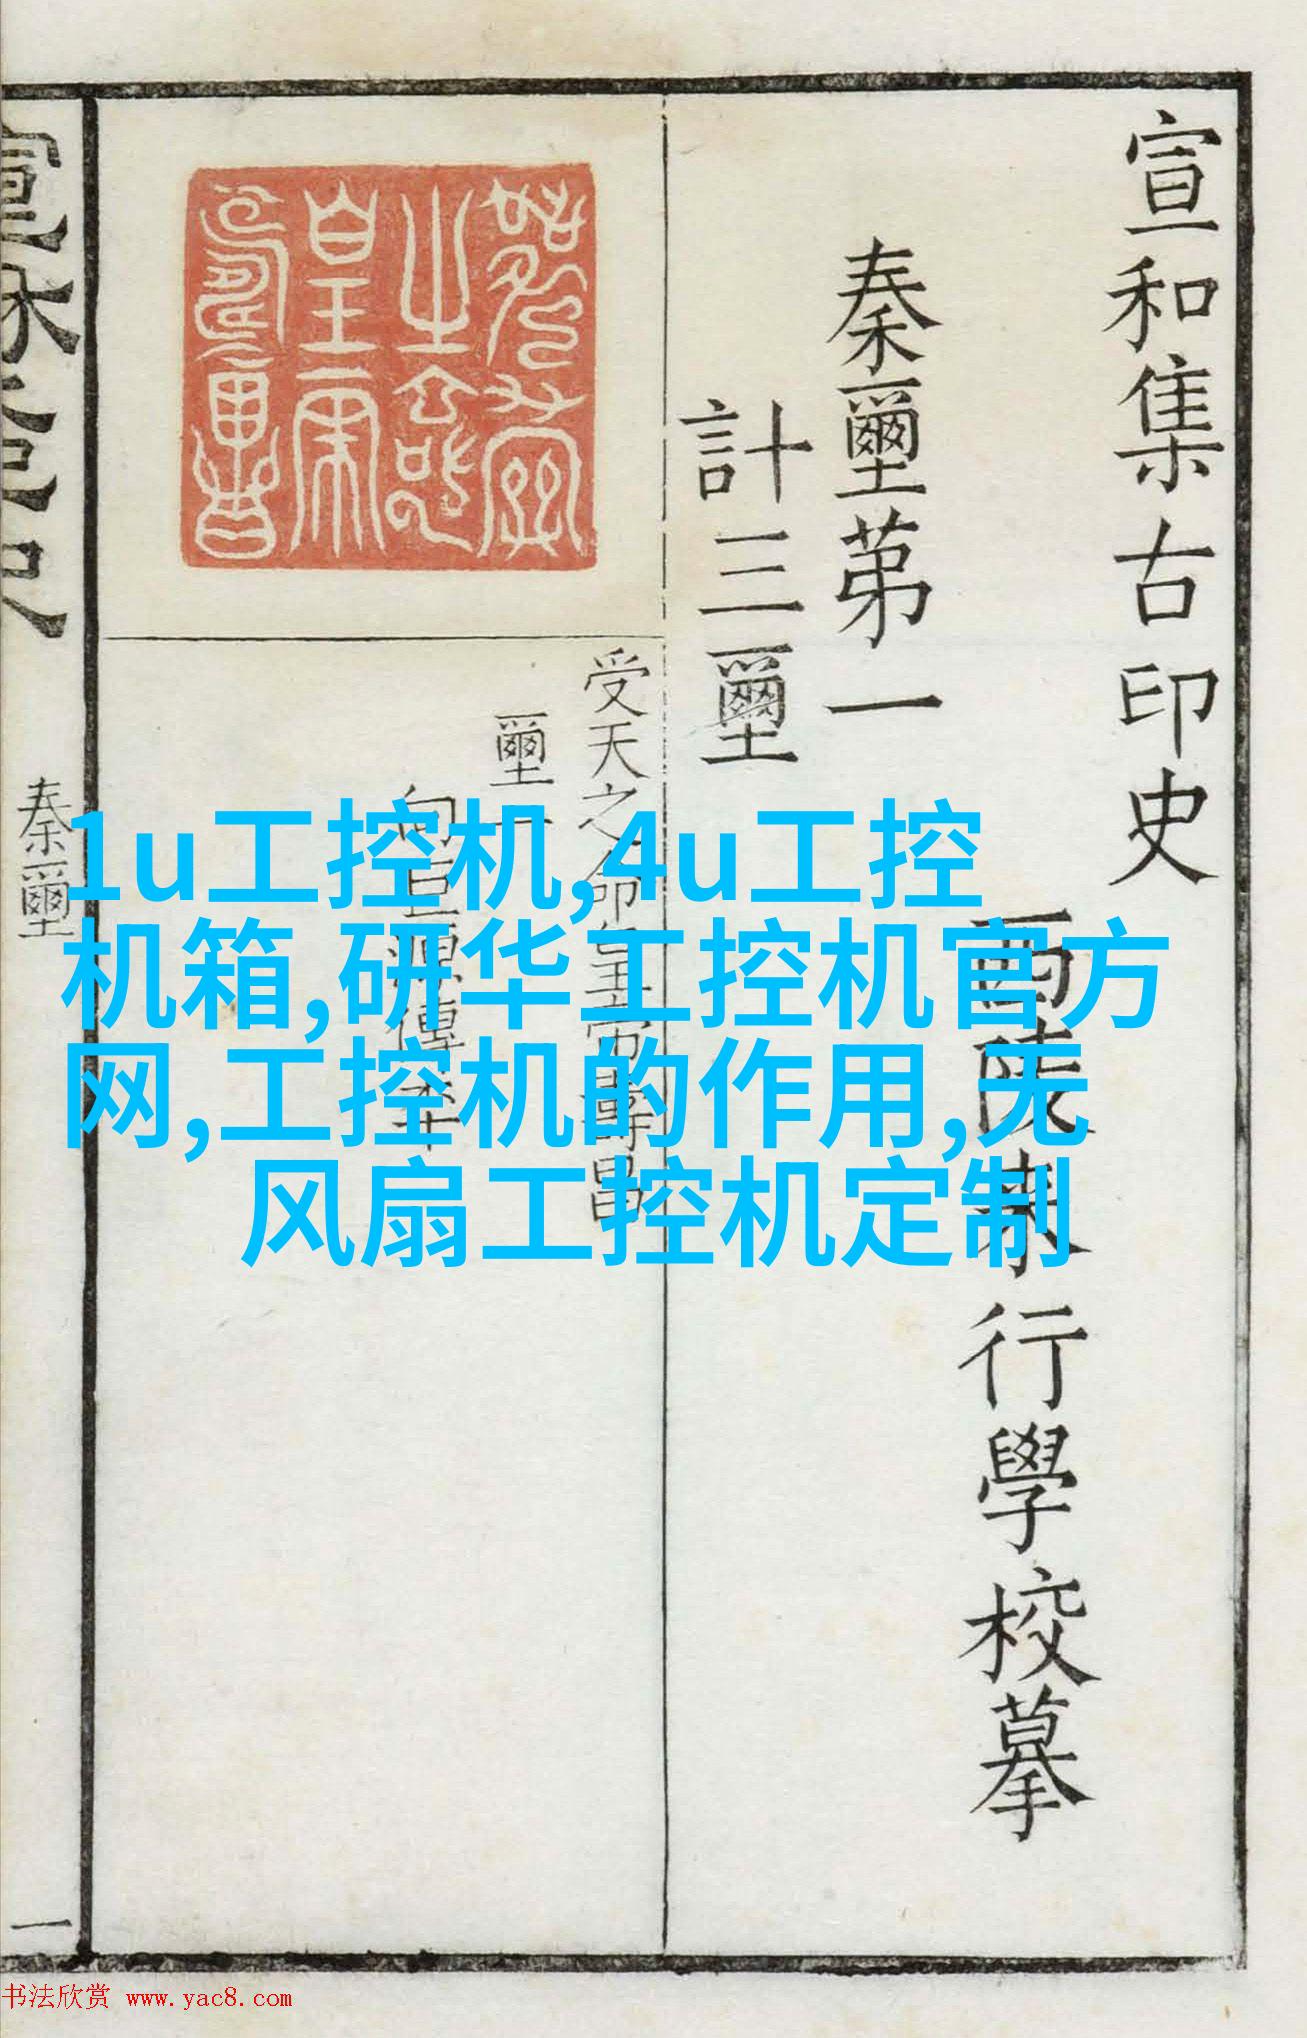 宣和集古印史
西陵來行學校摹
秦璽苐一
計三璽
受天之命皇帝壽昌
璽一
向巨源傳本
秦璽
一
1u工控机,4u工控
机箱,研华工控机官方
网,工控机的作用,无
风扇工控机定制
书法欣赏 www.yac8.com